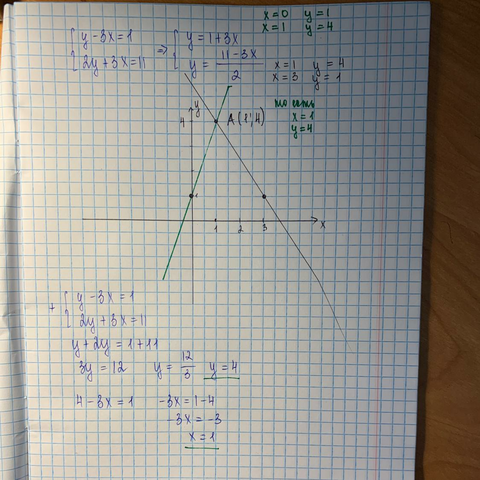 x=0 y=1
x=1 y=4
{ y-3x=1 => { y=1+3x
{ 2y+3x=11 { y= 11-3x / 2
x=1 y=4
x=3 y=1
то есть
x=1
y=4
y
4 A(1;4)
1 2 3 x
+ { y-3x=1
{ 2y+3x=11
y+2y=1+11
3y=12 y= 12/3 y=4
4-3x=1 -3x=1-4
-3x=-3
x=1